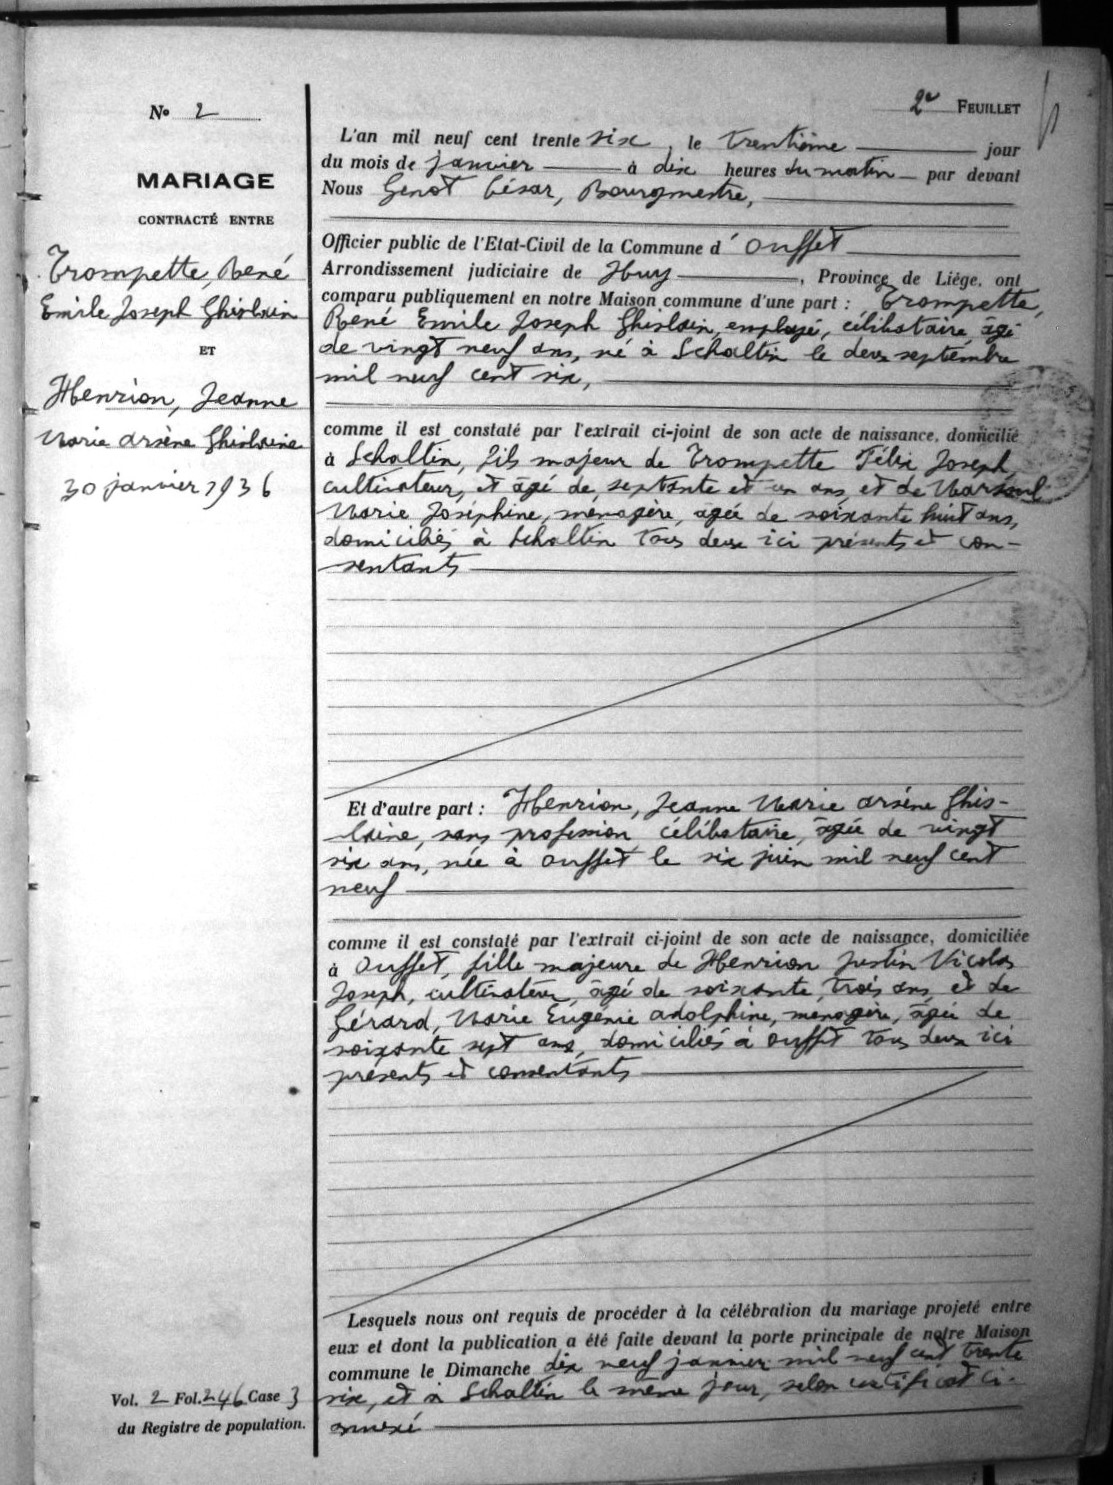 No 2
MARIAGE
CONTRACTÉ ENTRE
Trompette, René
Emile Joseph Ghislain
ET
Henrion, Jeanne
Marie Arsène Ghislaine
30 janvier 1936
2e FEUILLET
L'an mil neuf cent trente six, le trentième jour
du mois de janvier à dix heures du matin par devant
Nous Genot César, Bourgmestre,
Officier public de l'Etat-Civil de la Commune d'Ouffet
Arrondissement judiciaire de Huy, Province de Liége, ont
comparu publiquement en notre Maison commune d'une part : Trompette,
René Emile Joseph Ghislain, employé, célibataire, âgé
de vingt neuf ans, né à Schaltin le deux septembre
mil neuf cent six,
comme il est constaté par l'extrait ci-joint de son acte de naissance, domicilié
à Schaltin, fils majeur de Trompette Félix Joseph,
cultivateur, et âgé de septante et un ans, et de
Marie Joséphine, ménagère, âgée de soixante huit ans,
domiciliés à Schaltin tous deux ici présents et con-
sentants
Et d'autre part : Henrion, Jeanne Marie Arsène Ghis-
laine, sans profession, célibataire, âgée de vingt
six ans, née à Ouffet le six juin mil neuf cent
neuf
comme il est constaté par l'extrait ci-joint de son acte de naissance, domiciliée
à Ouffet, fille majeure de Henrion Justin Nicolas
Joseph, cultivateur, âgé de soixante trois ans, et de
Gérard, Marie Eugénie Adolphine, ménagère, âgée de
soixante sept ans, domiciliés à Ouffet tous deux ici
présents et consentants
Lesquels nous ont requis de procéder à la célébration du mariage projeté entre
eux et dont la publication a été faite devant la porte principale de notre Maison
commune le Dimanche dix neuf janvier mil neuf cent trente
six, et à Schaltin le même jour, selon certificat ci-
annexé
Vol. 2 Fol. 246 Case 3
du Registre de population.